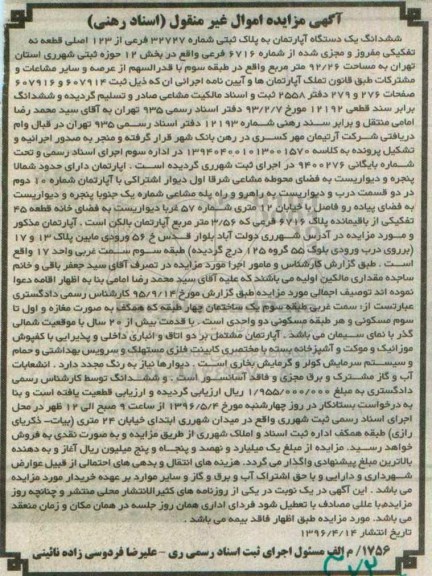 آگهی مزایده اموال غیر منقول (اسناد رهنی)
ششدانگ یک دستگاه آپارتمان به پلاک ثبتی شماره ۳۲۷۲۷ فرعی از ۱۲۳ اصلی قطعه نه
تفکیکی مفروز و مجزی شده از شماره ۶۷۱۶ فرعی واقع در بخش ۱۲ حوزه ثبتی شهرری استان
تهران به مساحت ۹۲/۲۶ متر مربع واقع در طبقه سوم با قدرالسهم از عرصه و سایر مشاعات و
مشترکات طبق قانون تملک آپارتمان ها و آیین نامه اجرائی آن که ذیل ثبت ۶۰۷۹۱۴ و ۶۰۷۹۱۶
صفحات ۲۷۶ و ۲۷۹ دفتر ۲۵۵۸ ثبت و اسناد مالکیت مشاعی صادر و تسلیم گردیده و ششدانگ
برابر سند قطعی ۱۲۱۹۲ مورخ ۹۳/۲/۷ دفتر اسناد رسمی ۹۳۵ تهران به آقای سید محمد رضا
امامی منتقل و برابر سند رهنی شماره ۱۲۱۹۳ دفتر اسناد رسمی ۹۳۵ تهران در قبال وام
دریافتی شرکت آرتیمان مهر کسری در رهن بانک شهر قرار گرفته و منجر به صدور اجرائیه و
تشکیل پرونده به کلاسه ۱۳۹۴۰۴۰۰۱۰۱۳۰۰۱۵۷۰ در اداره سوم اجرای اسناد رسمی و تحت
شماره بایگانی ۹۴۰۰۲۷۶ در اجرای ثبت شهرری گردیده است. آپارتمان دارای حدود شمالا
پنجره و دیواریست به فضای محوطه مشاعی شرقا اول دیوار اشتراکی با آپارتمان شماره ۱۰ دوم
در دو قسمت درب و دیواریست به راهرو و راه پله مشاعی شماره یک جنوبا پنجره و دیواریست
به فضای پیاده رو فاصل با خیابان ۱۲ متری شماره ۵۷ غربا دیواریست به فضای خانه قطعه ۴۵
تفکیکی از باقیمانده پلاک ۶۷۱۶ فرعی که ۳/۵۶ متر مربع آپارتمان بالکن است. آپارتمان مذکور
و مورد مزایده در آدرس شهرری دولت آباد بلوار قدس خ ۵۶ ورودی مابین پلاک ۱۳ و ۱۷
(برروی درب ورودی بلوک ۵۵ گروه ۲۵ درج گردیده) طبقه سوم سمت غربی واحد ۱۷ واقع
است. طبق گزارش کارشناس و مامور اجرا مورد مزایده در تصرف آقای سید جعفر باقی و خانم
ساجده مقداری مالکین اولیه می باشند که علیه آقای سید محمد رضا امامی بنا به اظهار اقامه دعوا
نموده اند توصیف اجمالی مورد مزایده طبق گزارش مورخ ۹۵/۹/۱۴ کارشناس رسمی دادگستری
عبارتست از: سمت غربی طبقه سوم یک ساختمان چهار طبقه که همکف به صورت مغازه و اول تا
سوم مسکونی و هر طبقه مسکونی دو واحدی است. با قدمت بیش از ۲۰ سال با موقعیت شمالی
گذر با نمای سیمان می باشد. آپارتمان مشتمل بر دو اتاق و انباری داخلی و پذیرایی با کفپوش
موزائیک و موکت و آشپزخانه بسته با مختصری کابینت فلزی مستهلک و سرویس بهداشتی و حمام
و سیستم سرمایش کولر و گرمایش بخاری است. دیوارها نیاز به رنگ مجدد دارد. انشعابات
آب و گاز مشترک و برق مجزی و فاقد آسانسور است. و ششدانگ توسط کارشناس رسمی
دادگستری به مبلغ ۱/۹۵۵/۰۰۰/۰۰۰ ریال ارزیابی گردیده و ارزیابی قطعیت یافته است و بنا
به درخواست بستانکار در روز چهارشنبه مورخ ۱۳۹۶/۵/۴ از ساعت ۹ صبح الی ۱۲ ظهر در محل
اجرای اسناد رسمی ثبت شهرری واقع در میدان شهرری ابتدای خیابان ۲۴ متری (بیات– ذکریای
رازی) طبقه همکف اداره ثبت اسناد و املاک شهرری از طریق مزایده و به صورت نقدی به فروش
خواهد رسید. مزایده از مبلغ یک میلیارد و نهصد و پنجاه و پنج میلیون ریال آغاز و به دهنده
بالاترین مبلغ پیشنهادی واگذار می گردد. هزینه های انتقال و بدهی های احتمالی از قبیل عوارض
شهرداری و دارایی و یا حق اشتراک آب و برق و گاز و سایر موارد بر عهده خریدار مورد مزایده
می باشد. این آگهی در یک نوبت در یکی از روزنامه های کثیرالانتشار محلی منتشر و چنانچه روز
مزایده با عللی مصادف با تعطیل شود فردای اداری همان روز جلسه در همان مکان و زمان منعقد
می باشد. مورد مزایده طبق اظهار فاقد بیمه می باشد.
تاریخ انتشار ۱۳۹۶/۴/۱۴
۱۷۵۶/ م الف مسئول اجرای ثبت اسناد رسمی ری – علیرضا فردوسی زاده نائینی